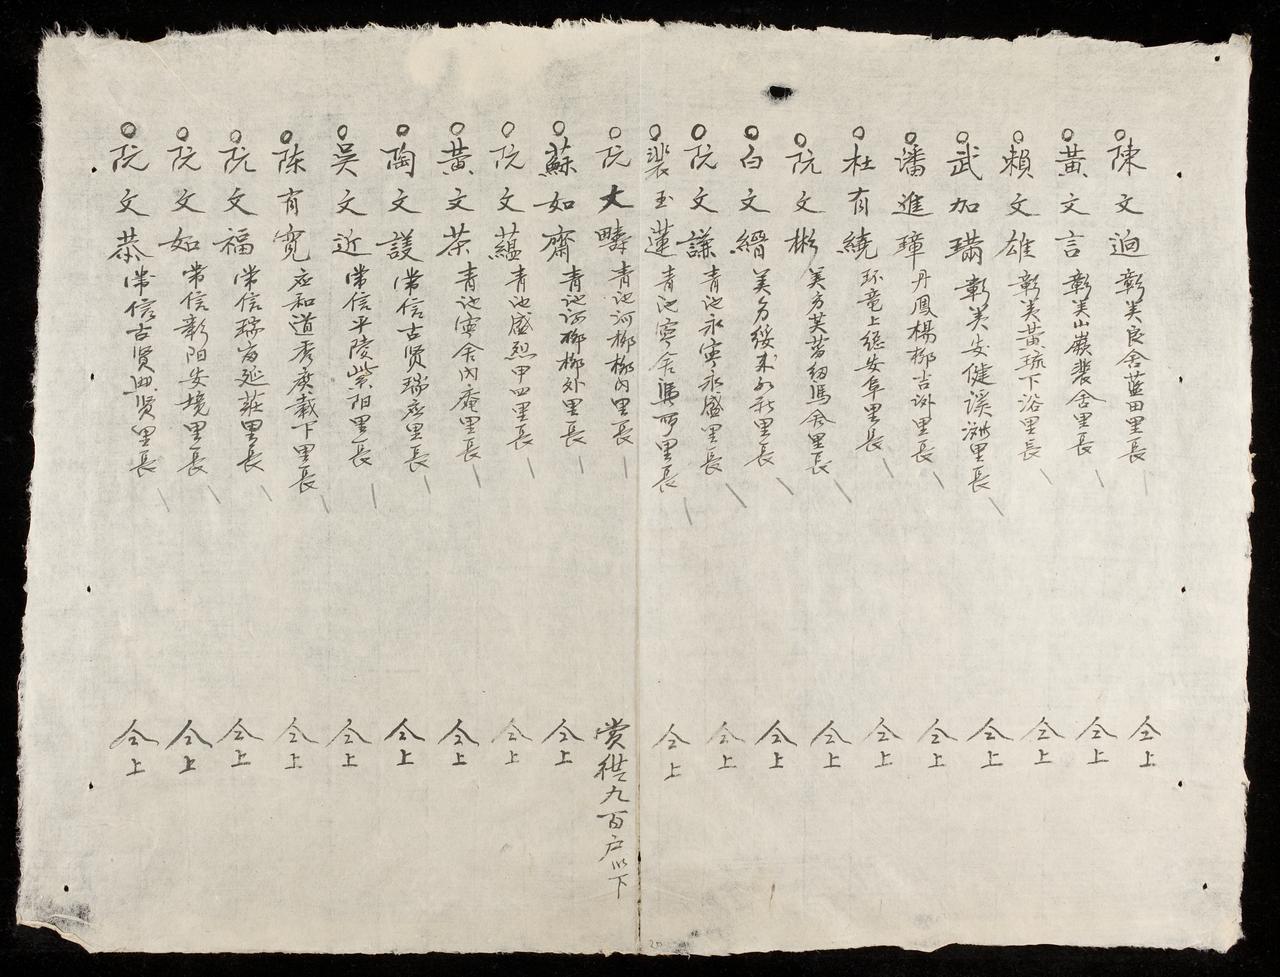 ○陳文迥彰美良舍藍田里長 仝上
○黃文言彰美山嚴裴舍里長 仝上
○賴文雄彰美黃琉下浴里長 仝上
○武加璊彰美安健里長 仝上
○潘進璋丹鳳楊柳吉外里長 仝上
○杜有繞环竜上總安阜里長 仝上
○阮文彬美方芙蒥細馬舍里長 仝上
○白文縉美方綏來里長 仝上
○阮文謙青池永寧永盛里長 仝上
○裴玉蓮青池寧舍馬里長 仝上
○阮大疇青池河柳柳內里長 賞獎九百戶以下
○蘇如齋青池河柳柳外里長 仝上
○阮文蘊青池盛烈甲四里長 仝上
○黃文茶青池寧舍內庵里長 仝上
○陶文護常信古賢瑞應里長 仝上
○吳文近常信平陵紫阳里長 仝上
○陈有寬应和道秀庚載下里長 仝上
○阮文福常信瑞延莊里長 仝上
○阮文如常信彰阳安境里長 仝上
○阮文恭常信古賢賢里長 仝上
20